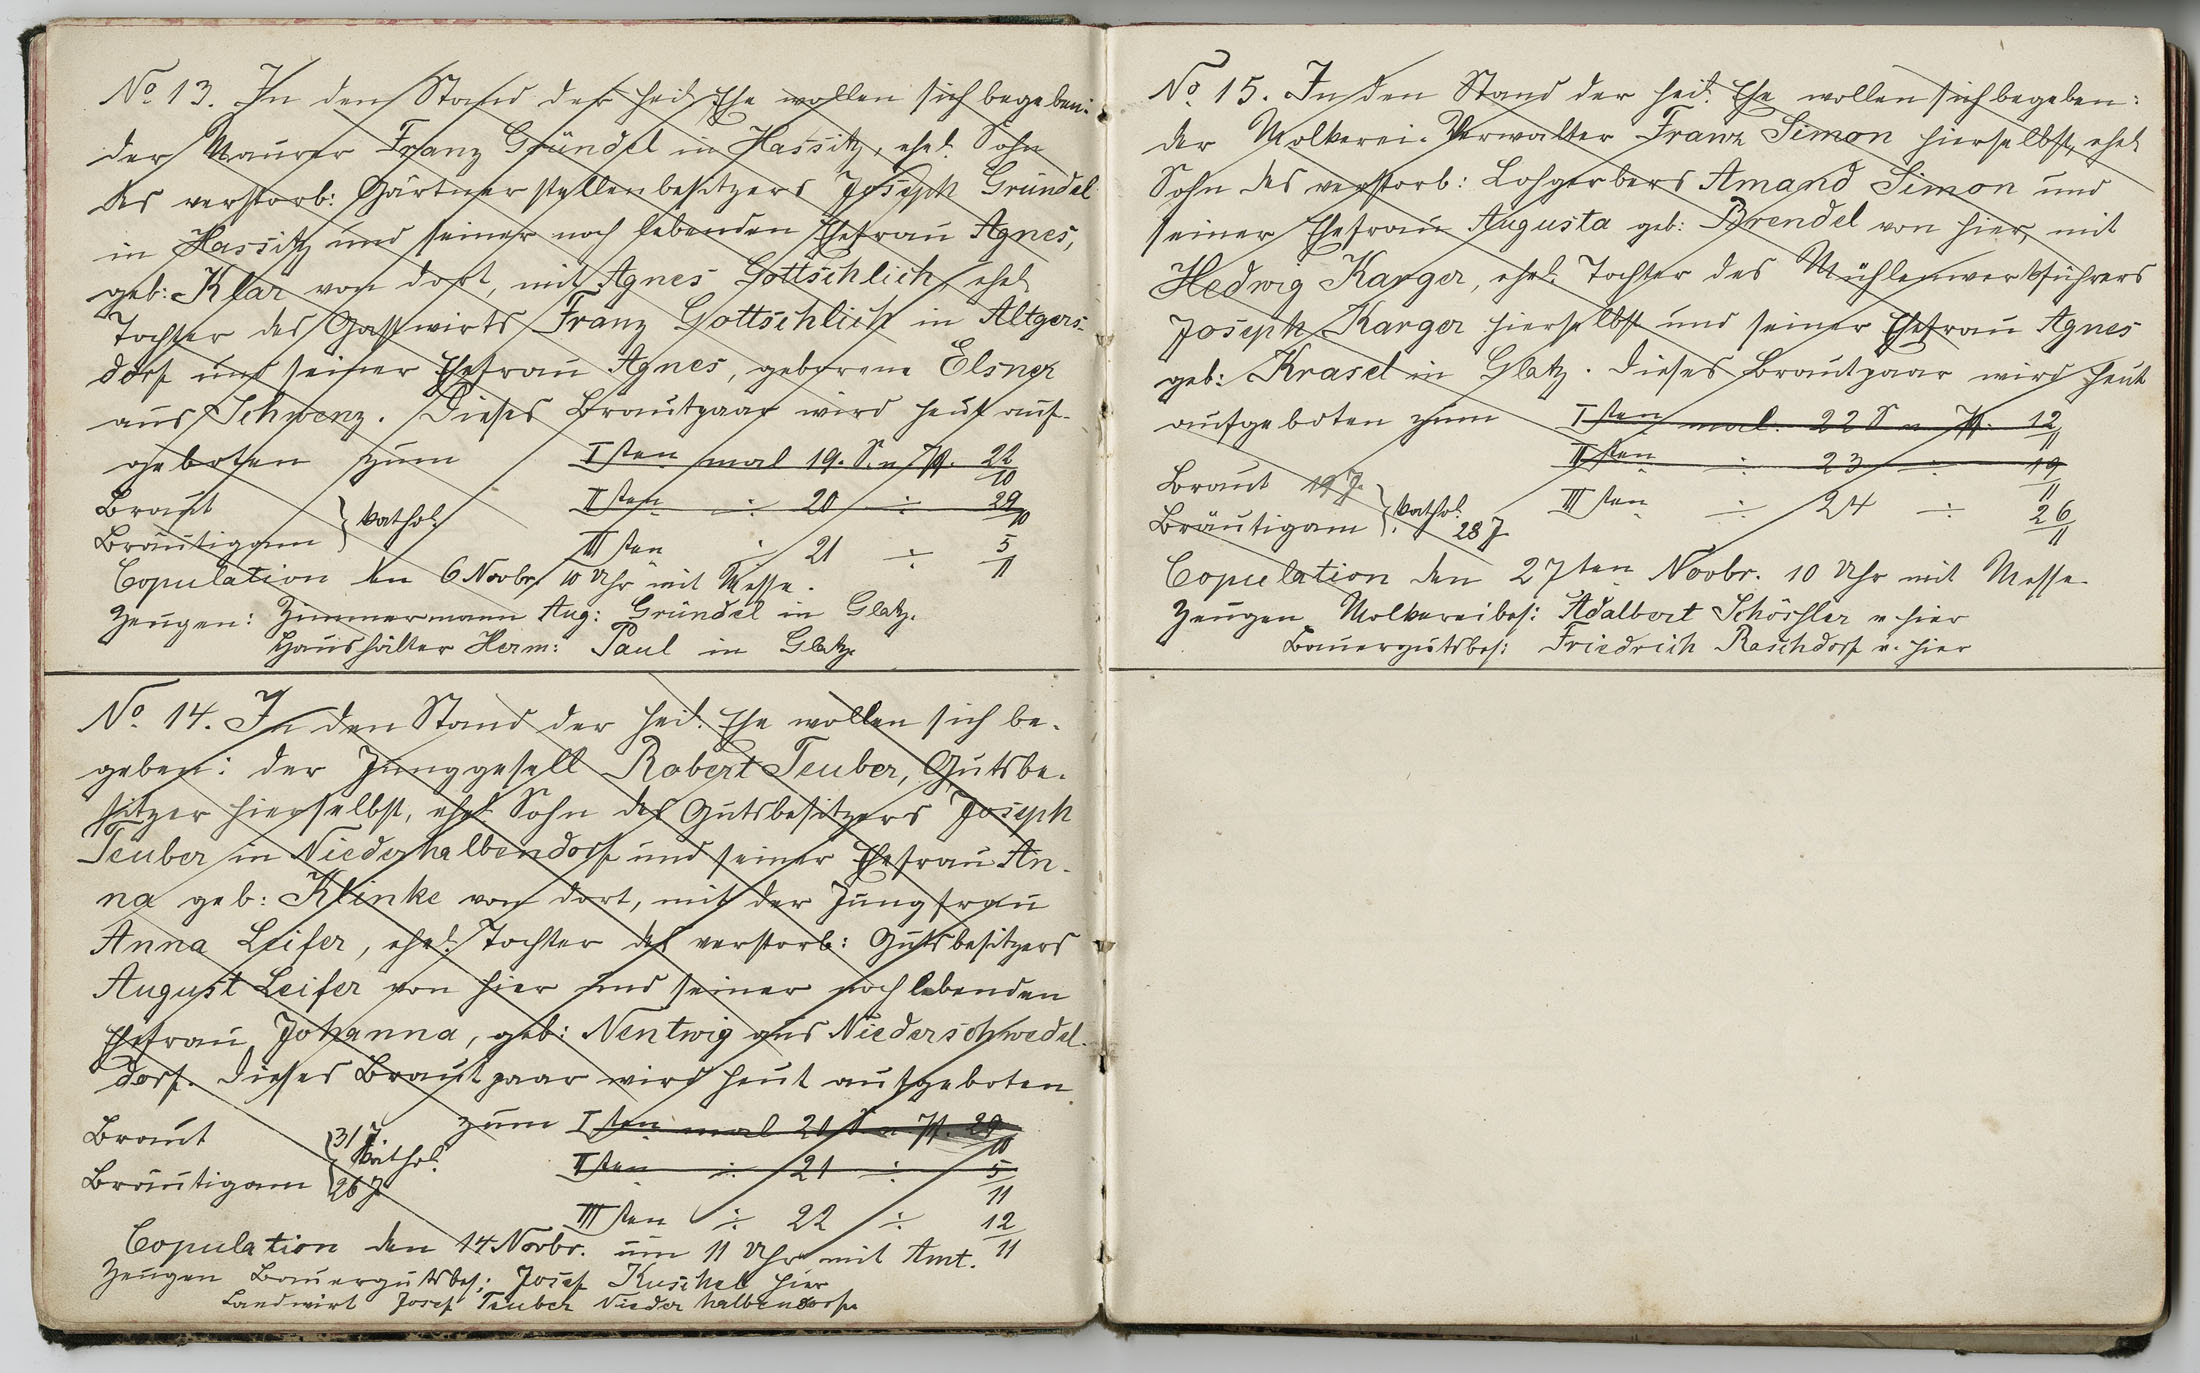 No 13. In den Stand der heil. Ehe wollen sich begeben:
der Maurer Franz Gründel in Hassitz, ehel. Sohn
des verstorb: Gärtnerstellenbesitzers Joseph Gründel
in Hassitz und seiner noch lebenden Ehefrau Agnes,
geb: Klar von dort, mit Agnes Gottschlich, ehel.
Tochter des Gastwirts Franz Gottschlich in Altgers-
dorf und seiner Ehefrau Agnes, geborene Elsner
aus Schwenz. Dieses Brautpaar wird heut auf-
geboten zum Isten mal 19. S. n. Pf. 22/10
Braut IIsten ÷ 20 ÷ 29/10
Bräutigam } kathol. IIIsten ÷ 21 ÷ 5/11
Copulation den 6 Novbr. 10 Uhr mit Messe.
Zeugen: Zimmermann Aug: Gründel in Glatz.
Haushälter Herm: Paul in Glatz.
No 14. In den Stand der heil. Ehe wollen sich be-
geben: der Junggesell Robert Teuber, Gutsbe-
sitzer hierselbst, ehel. Sohn des Gutsbesitzers Joseph
Teuber in Niederhalbendorf und seiner Ehefrau An-
na geb: Klinke von dort, mit der Jungfrau
Anna Leifer, ehel. Tochter des verstorb: Gutsbesitzers
August Leifer von hier und seiner noch lebenden
Ehefrau Johanna, geb: Nentwig aus Niederschwedel-
dorf. Dieses Brautpaar wird heut aufgeboten
zum Isten mal 20 S. n. Pf. 29/10
Braut 31 J. IIsten ÷ 21 ÷ 5/11
Bräutigam } kathol. 26 J.
IIIsten ÷ 22 ÷ 12/11
Copulation den 14 Novbr. um 11 Uhr mit Amt.
Zeugen Bauergutsbes: Josef Kuschel hier
Landwirt Josef Teuber Niederhalbendorf.
No. 15. In den Stand der heil. Ehe wollen sich begeben:
der Molkerei-Verwalter Franz Simon hierselbst, ehel.
Sohn des verstorb: Lohgerbers Amand Simon und
seiner Ehefrau Augusta geb: Brendel von hier, mit
Hedwig Karger, ehel. Tochter des Mühlenwerkführers
Joseph Karger hierselbst und seiner Ehefrau Agnes
geb: Krasel in Glatz. Dieses Brautpaar wird heut
aufgeboten zum Isten mal 22 S. n. Pf. 12/11
IIsten ÷ 23 ÷ 19/11
Braut 19 J. IIIsten ÷ 24 ÷ 26/11
Bräutigam } kathol. 28 J.
Copulation den 27ten Novbr. 10 Uhr mit Messe.
Zeugen Molkereibes: Adalbert v. hier
Bauergutsbes: Friedrich Raschdorf v. hier